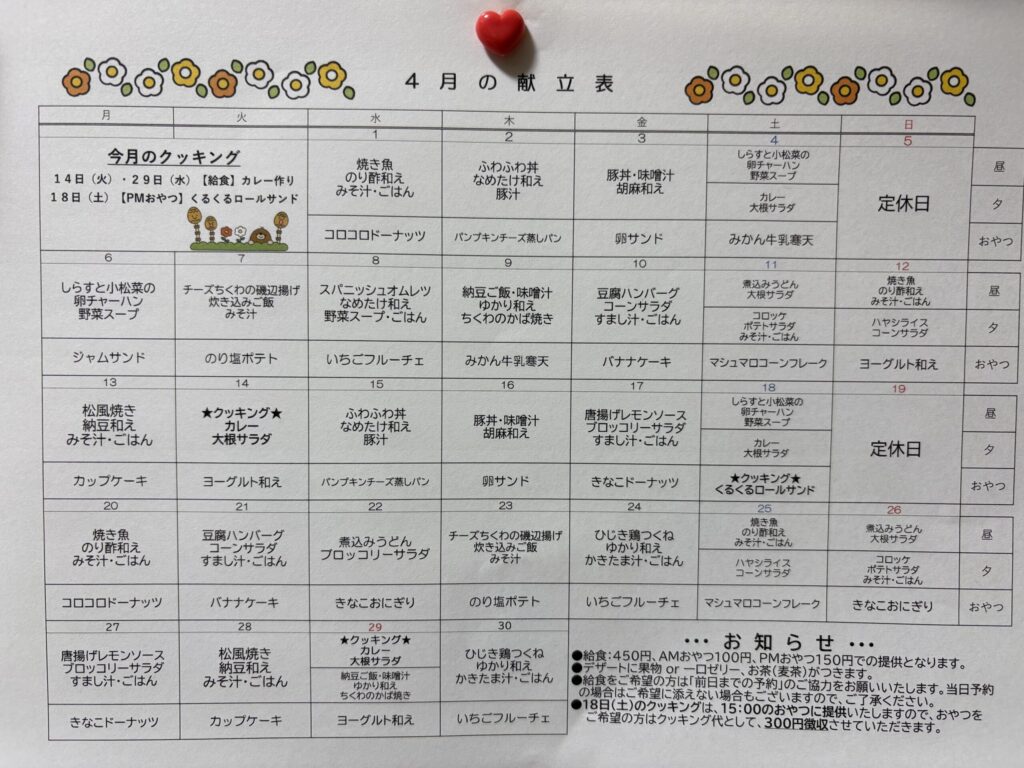 4月の献立表
月 火 水 木 金 土 日
1 2 3 4 5
今月のクッキング
14日(火)・29日(水)【給食】カレー作り
18日(土)【PMおやつ】くるくるロールサンド
焼き魚
のり酢和え
みそ汁・ごはん
コロコロドーナッツ
ふわふわ丼
なめたけ和え
豚汁
パンプキンチーズ蒸しパン
豚丼・味噌汁
胡麻和え
卵サンド
しらすと小松菜の
卵チャーハン
野菜スープ
カレー
大根サラダ
みかん牛乳寒天
定休日
昼
夕
おやつ
6 7 8 9 10 11 12
しらすと小松菜の
卵チャーハン
野菜スープ
ジャムサンド
チーズちくわの磯辺揚げ
炊き込みご飯
みそ汁
のり塩ポテト
スパニッシュオムレツ
なめたけ和え
野菜スープ・ごはん
いちごフルーチェ
納豆ご飯・味噌汁
ゆかり和え
ちくわのかば焼き
みかん牛乳寒天
豆腐ハンバーグ
コーンサラダ
すまし汁・ごはん
バナナケーキ
煮込みうどん
大根サラダ
コロッケ
ポテトサラダ
みそ汁・ごはん
マシュマロコーンフレーク
焼き魚
のり酢和え
みそ汁・ごはん
ハヤシライス
コーンサラダ
ヨーグルト和え
昼
夕
おやつ
13 14 15 16 17 18 19
松風焼き
納豆和え
みそ汁・ごはん
カップケーキ
★クッキング★
カレー
大根サラダ
ヨーグルト和え
ふわふわ丼
なめたけ和え
豚汁
パンプキンチーズ蒸しパン
豚丼・味噌汁
胡麻和え
卵サンド
唐揚げレモンソース
ブロッコリーサラダ
すまし汁・ごはん
きなこドーナッツ
しらすと小松菜の
卵チャーハン
野菜スープ
カレー
大根サラダ
★クッキング★
くるくるロールサンド
定休日
昼
夕
おやつ
20 21 22 23 24 25 26
焼き魚
のり酢和え
みそ汁・ごはん
コロコロドーナッツ
豆腐ハンバーグ
コーンサラダ
すまし汁・ごはん
バナナケーキ
煮込みうどん
ブロッコリーサラダ
きなこおにぎり
チーズちくわの磯辺揚げ
炊き込みご飯
みそ汁
のり塩ポテト
ひじき鶏つくね
ゆかり和え
かきたま汁・ごはん
いちごフルーチェ
焼き魚
のり酢和え
みそ汁・ごはん
ハヤシライス
コーンサラダ
マシュマロコーンフレーク
煮込みうどん
大根サラダ
コロッケ
ポテトサラダ
みそ汁・ごはん
きなこおにぎり
昼
夕
おやつ
27 28 29 30
唐揚げレモンソース
ブロッコリーサラダ
すまし汁・ごはん
きなこドーナッツ
松風焼き
納豆和え
みそ汁・ごはん
カップケーキ
★クッキング★
カレー
大根サラダ
納豆ご飯・味噌汁
ゆかり和え
ちくわのかば焼き
ヨーグルト和え
ひじき鶏つくね
ゆかり和え
かきたま汁・ごはん
いちごフルーチェ
••• お知らせ •••
●給食:450円、AMおやつ100円、PMおやつ150円での提供となります。
●デザートに果物 or 一口ゼリー、お茶(麦茶)がつきます。
●給食をご希望の方は「前日までの予約」のご協力をお願いいたします。当日予約
の場合はご希望に添えない場合もございますので、ご了承ください。
●18日(土)のクッキングは、15:00のおやつに提供いたしますので、おやつを
ご希望の方はクッキング代として、300円徴収させていただきます。